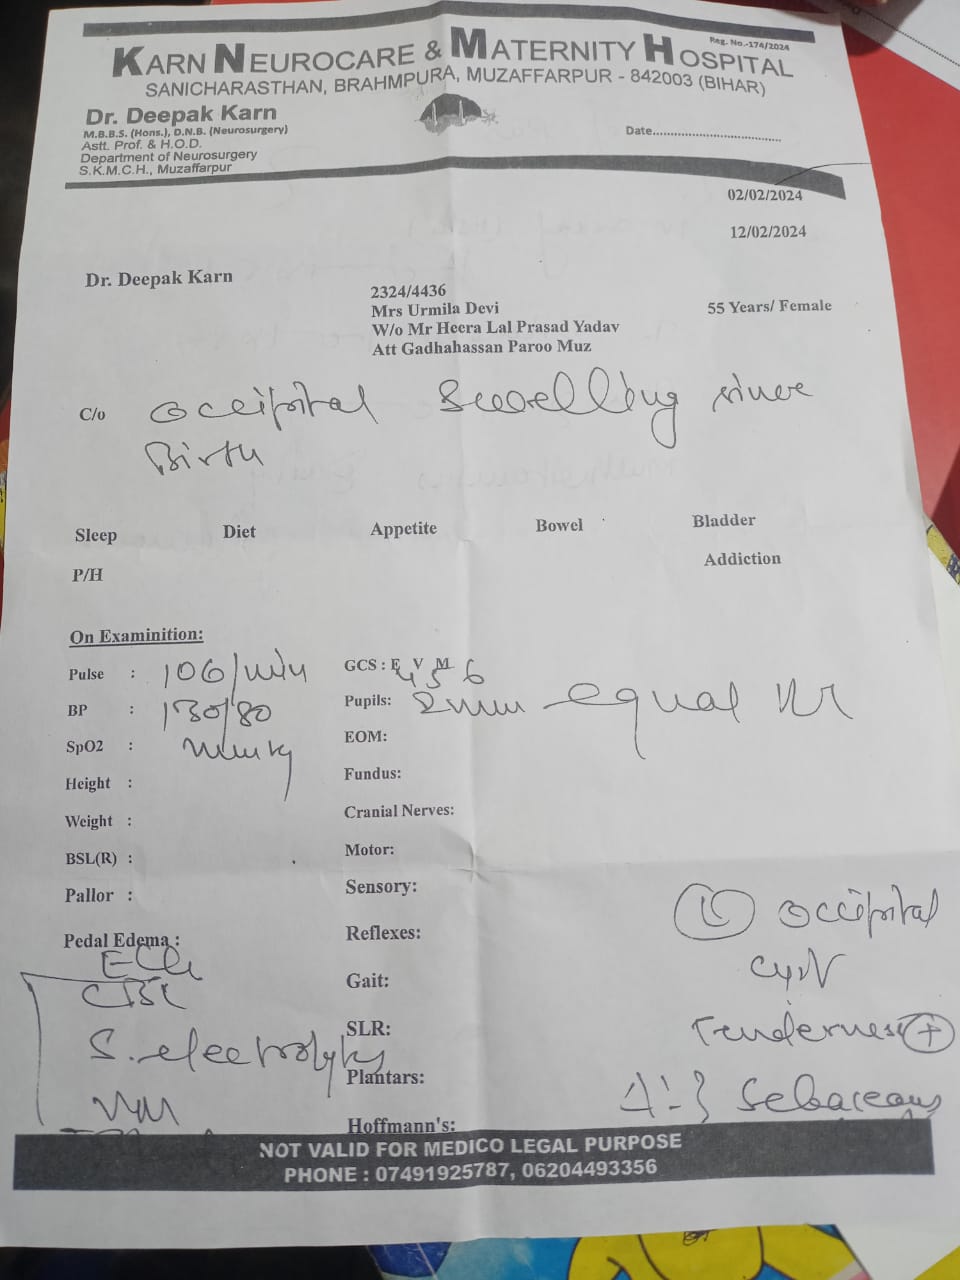 Reg. No.-174/2024
KARN NEUROCARE & MATERNITY HOSPITAL
SANICHARASTHAN, BRAHMPURA, MUZAFFARPUR - 842003 (BIHAR)
Dr. Deepak Karn
M.B.B.S. (Hons.), D.N.B. (Neurosurgery)
Astt. Prof. & H.O.D.
Department of Neurosurgery
S.K.M.C.H., Muzaffarpur
Date....................................
02/02/2024
12/02/2024
Dr. Deepak Karn
2324/4436
Mrs Urmila Devi 55 Years/ Female
W/o Mr Heera Lal Prasad Yadav
Att Gadhahassan Paroo Muz
C/o occipital swelling since
Birth
Sleep Diet Appetite Bowel Bladder
P/H Addiction
On Examinition:
Pulse : 106/min GCS : E4 V5 M6
BP : 130/80 Pupils: 2mm equal
SpO2 : mmHg EOM:
Height : Fundus:
Weight : Cranial Nerves:
BSL(R) : Motor:
Pallor : Sensory:
Pedal Edema : Reflexes:
Gait:
SLR:
Plantars:
Hoffmann's:
ECG
CBC
S. electrolytes
occipital
cyst
Tenderness +
Sebaceous
NOT VALID FOR MEDICO LEGAL PURPOSE
PHONE : 07491925787, 06204493356